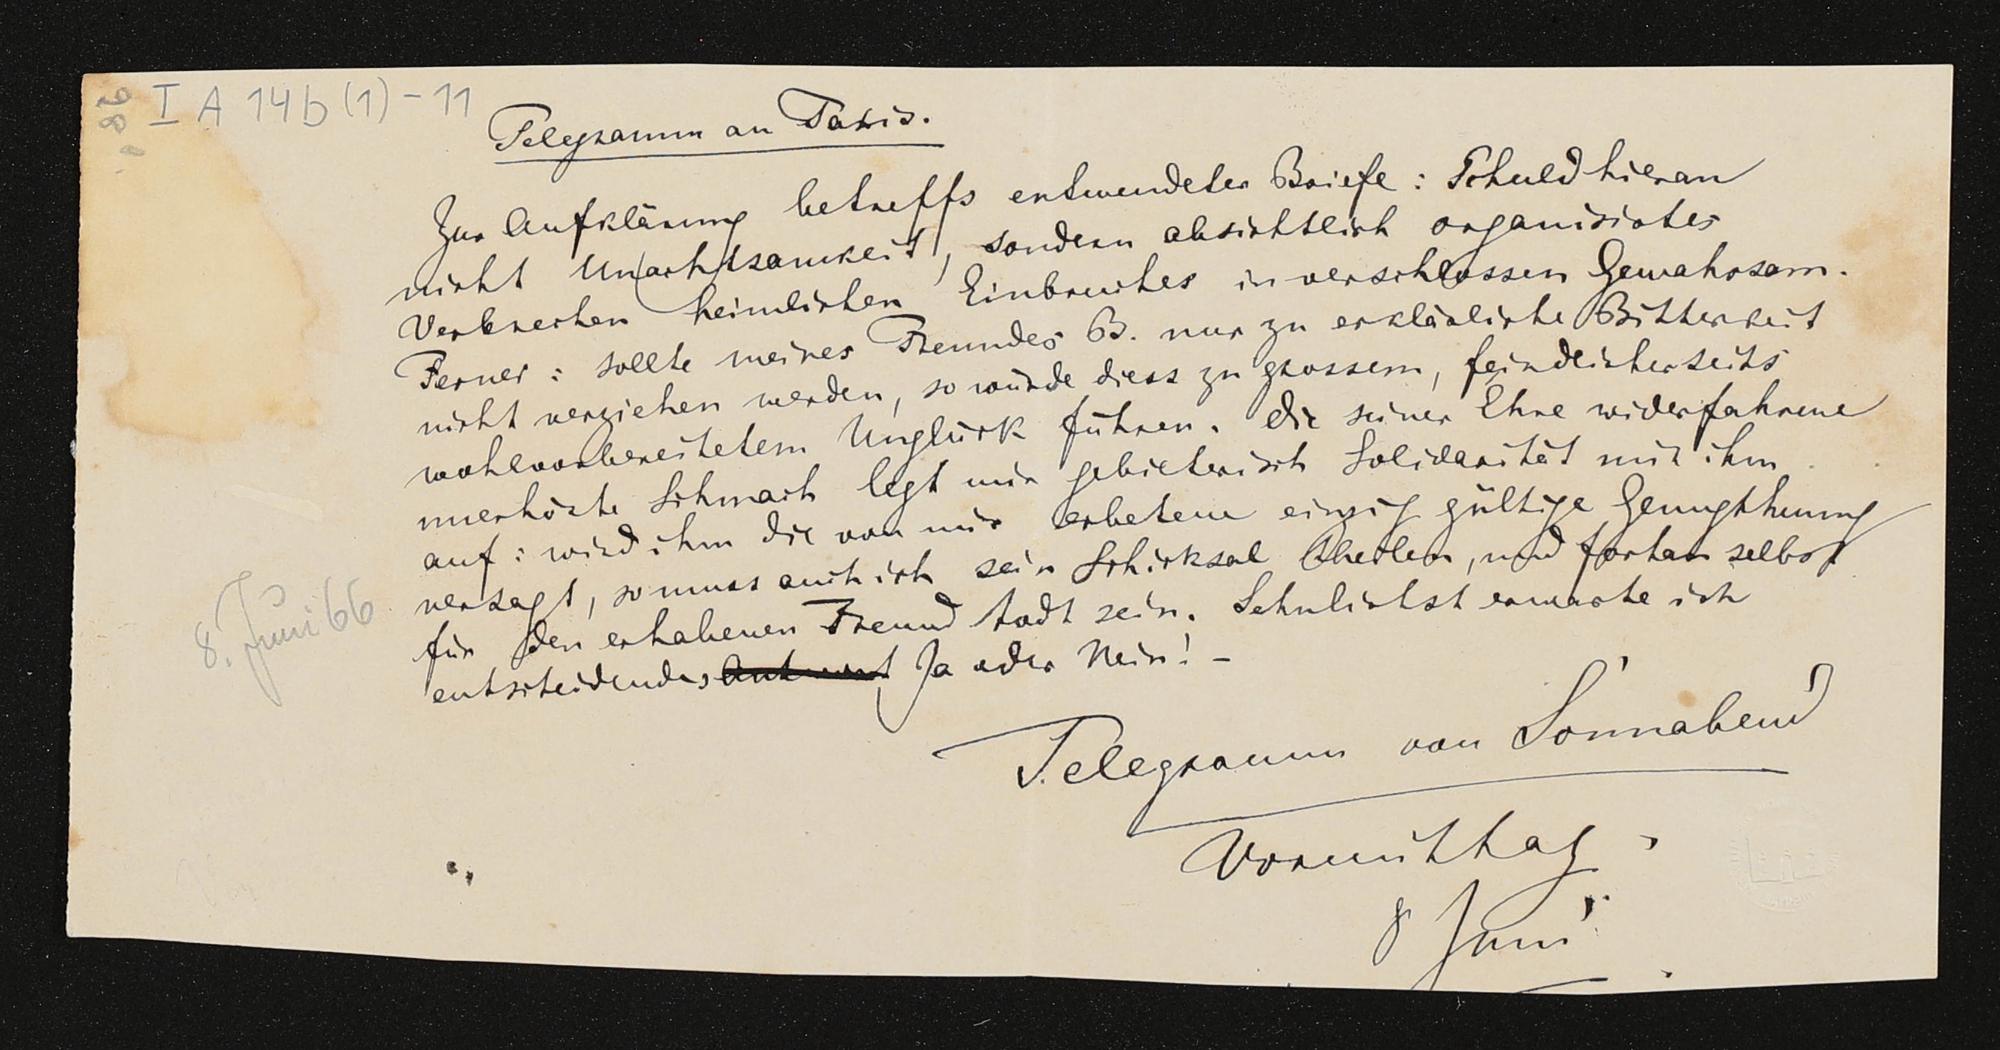 98
I A 14b (1) - 11
Telegramm an Taxis.
Zur Aufklärung betreffs entwendeter Briefe: Schuld hieran
nicht Unachtsamkeit, sondern absichtlich organisirtes
Verbrechen heimlichen Einbruches in verschlossen Gewahrsam.
Ferner: sollte meines Freundes B. nur zu erklärliche Bitterkeit
nicht verziehen werden, so würde diess zu grossem, feindlicherseits
wohlvorbereitetem Unglück führen. Die seiner Ehre widerfahrene
unerhörte Schmach legt mir gebieterisch Solidarität mit ihm
auf: wird ihm die von mir erbetene einzig gültige Genugthuung
versagt, so muss auch ich sein Schicksal theilen, und fortan selbst
für den erhabenen Freund todt sein. Sehnlichst erwarte ich
entscheidendes Antwort Ja oder Nein! –
8. Juni 66
Telegramm von Sonnabend
Vormittag
8 Juni